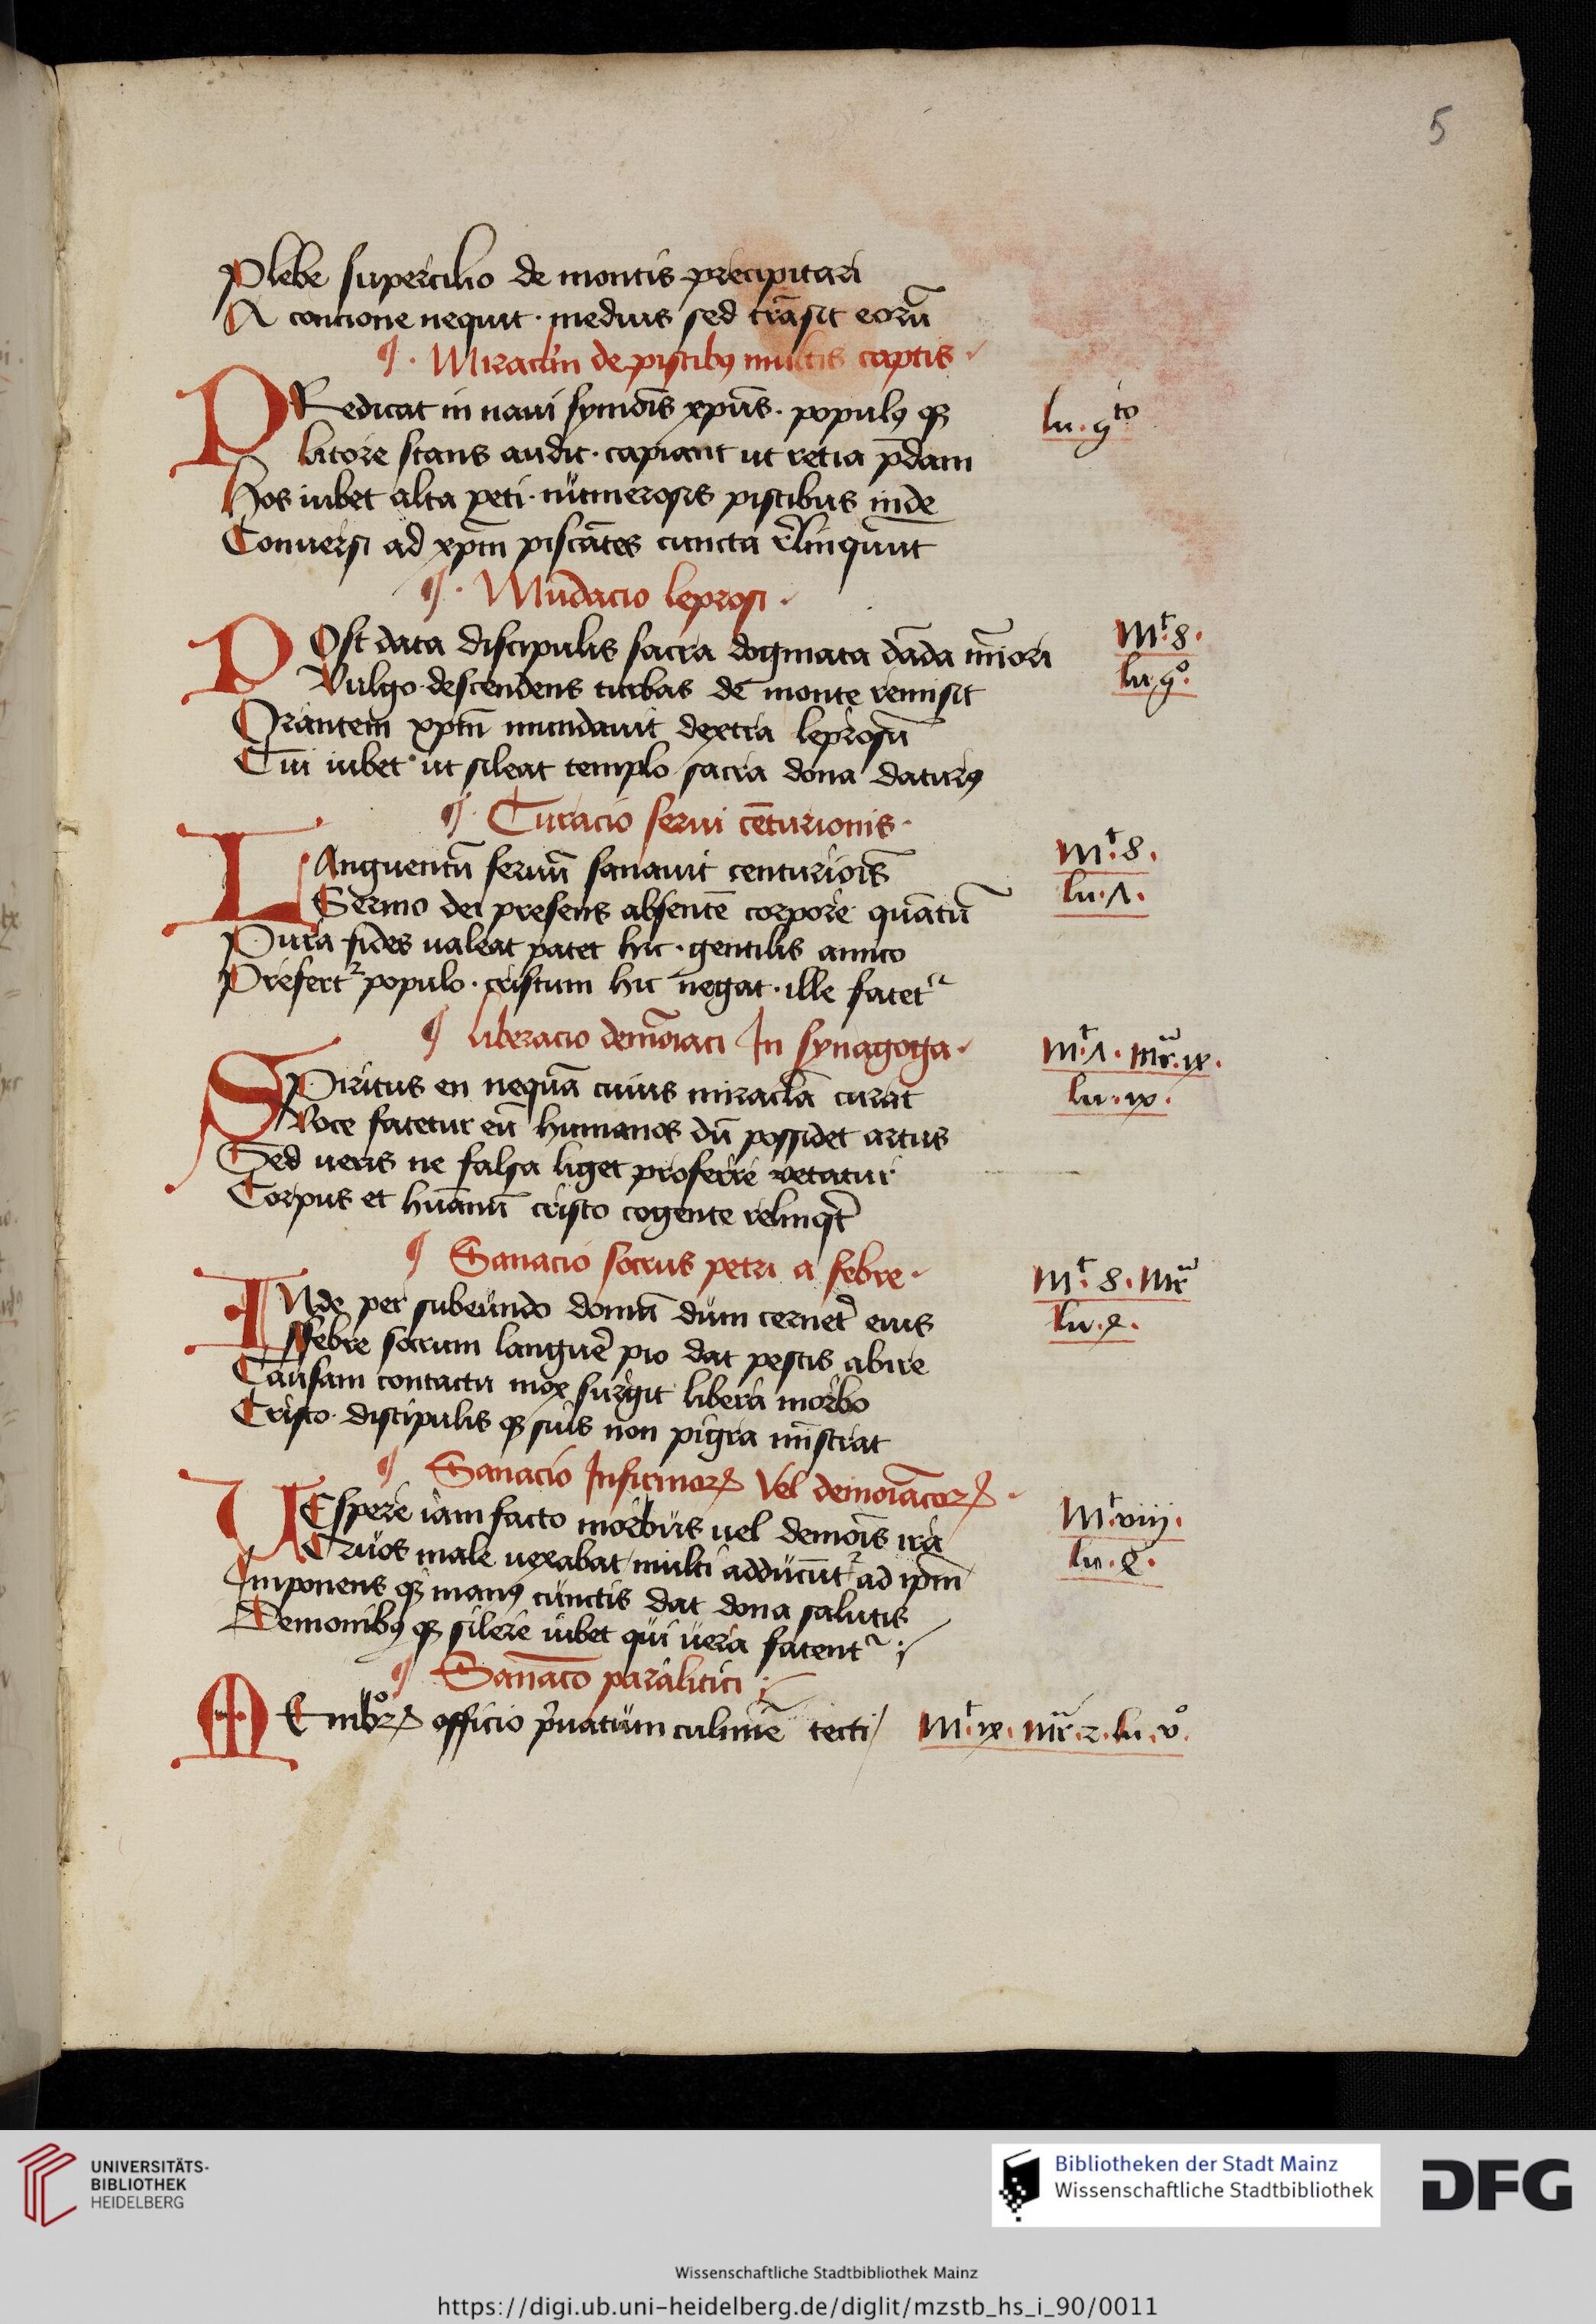 5
Plebe supercilio de montis precipitari
A concione nequit · medius sed trāsit eorū
¶ · Miraclm̄ de piscibꝫ multis captis
PRedicat in naui symōis xpūs · populꝫ qꝫ
litore stans audit · capiant ut retia p̄dam
Hos iubet alta peti · numerosis piscibus inde
Conuersi ad xpm̄ piscātes cuncta r̄linquūt
lu · 9to
¶ · Mūdacio leprosi ·
POst data discipulis sacra dogmata dāda mīori
Vulgo · descendens turbas de monte remisit
Orantem xptm̄ mundauit dextra leprosū
Cui iubet ut sileat templo sacra dona daturꝰ
Mt · 8 ·
lu · 9o
¶ · Curacio serui cēturionis ·
LAnguentū seruū sanauit centuriōis
Sermo dei presens absentē corpore quātū
Pura fides ualeat patet hic · gentilis amico
Prefertr populo · cristum hic negat · ille fatetr
Mt · 8 ·
lu · Λ ·
¶ liberacio demōiaci In synagoga ·
SPiritus en nequā cuius miracła curat
Voce fatetur eū humanos dū possidet artus
Sed ueris ne falsa liget proferre vetatur
Corpus et huānū cristo cogente relinqt̄
Mt · Λ · Mr · ıx ·
lu · ıx ·
¶ Sanacio socrus petri a febre ·
INde per subeundo domū dum cernet̄ eius
ffebre socrum languē pro dat pestis abire
Causam contactu mox surgit libera morbo
Cristo · discipulis qꝫ suis non pigra mīstrat
Mt · 8 · Mr
lu · e ·
¶ Sanacio Infirmorꝝ Vel demoiācorꝝ ·
VEspere iam facto morbus uel demōis ira
Cruos male uexabat multi adducūtr ad ipm̄
Imponens qꝫ manꝰ cunctis dat dona salutis
Demonibꝫ qꝫ silere iubet qui uera fatentr
Mt · viiij ·
lu · e ·
¶ Sanacō paralitici
MEmbrorꝝ officio p̄uatum culmīe tecti
Mt · ıx · Mr · 2 · lu · vo
UNIVERSITÄTS-
BIBLIOTHEK
HEIDELBERG
Bibliotheken der Stadt Mainz
Wissenschaftliche Stadtbibliothek
DFG
Wissenschaftliche Stadtbibliothek Mainz
https://digi.ub.uni-heidelberg.de/diglit/mzstb_hs_i_90/0011